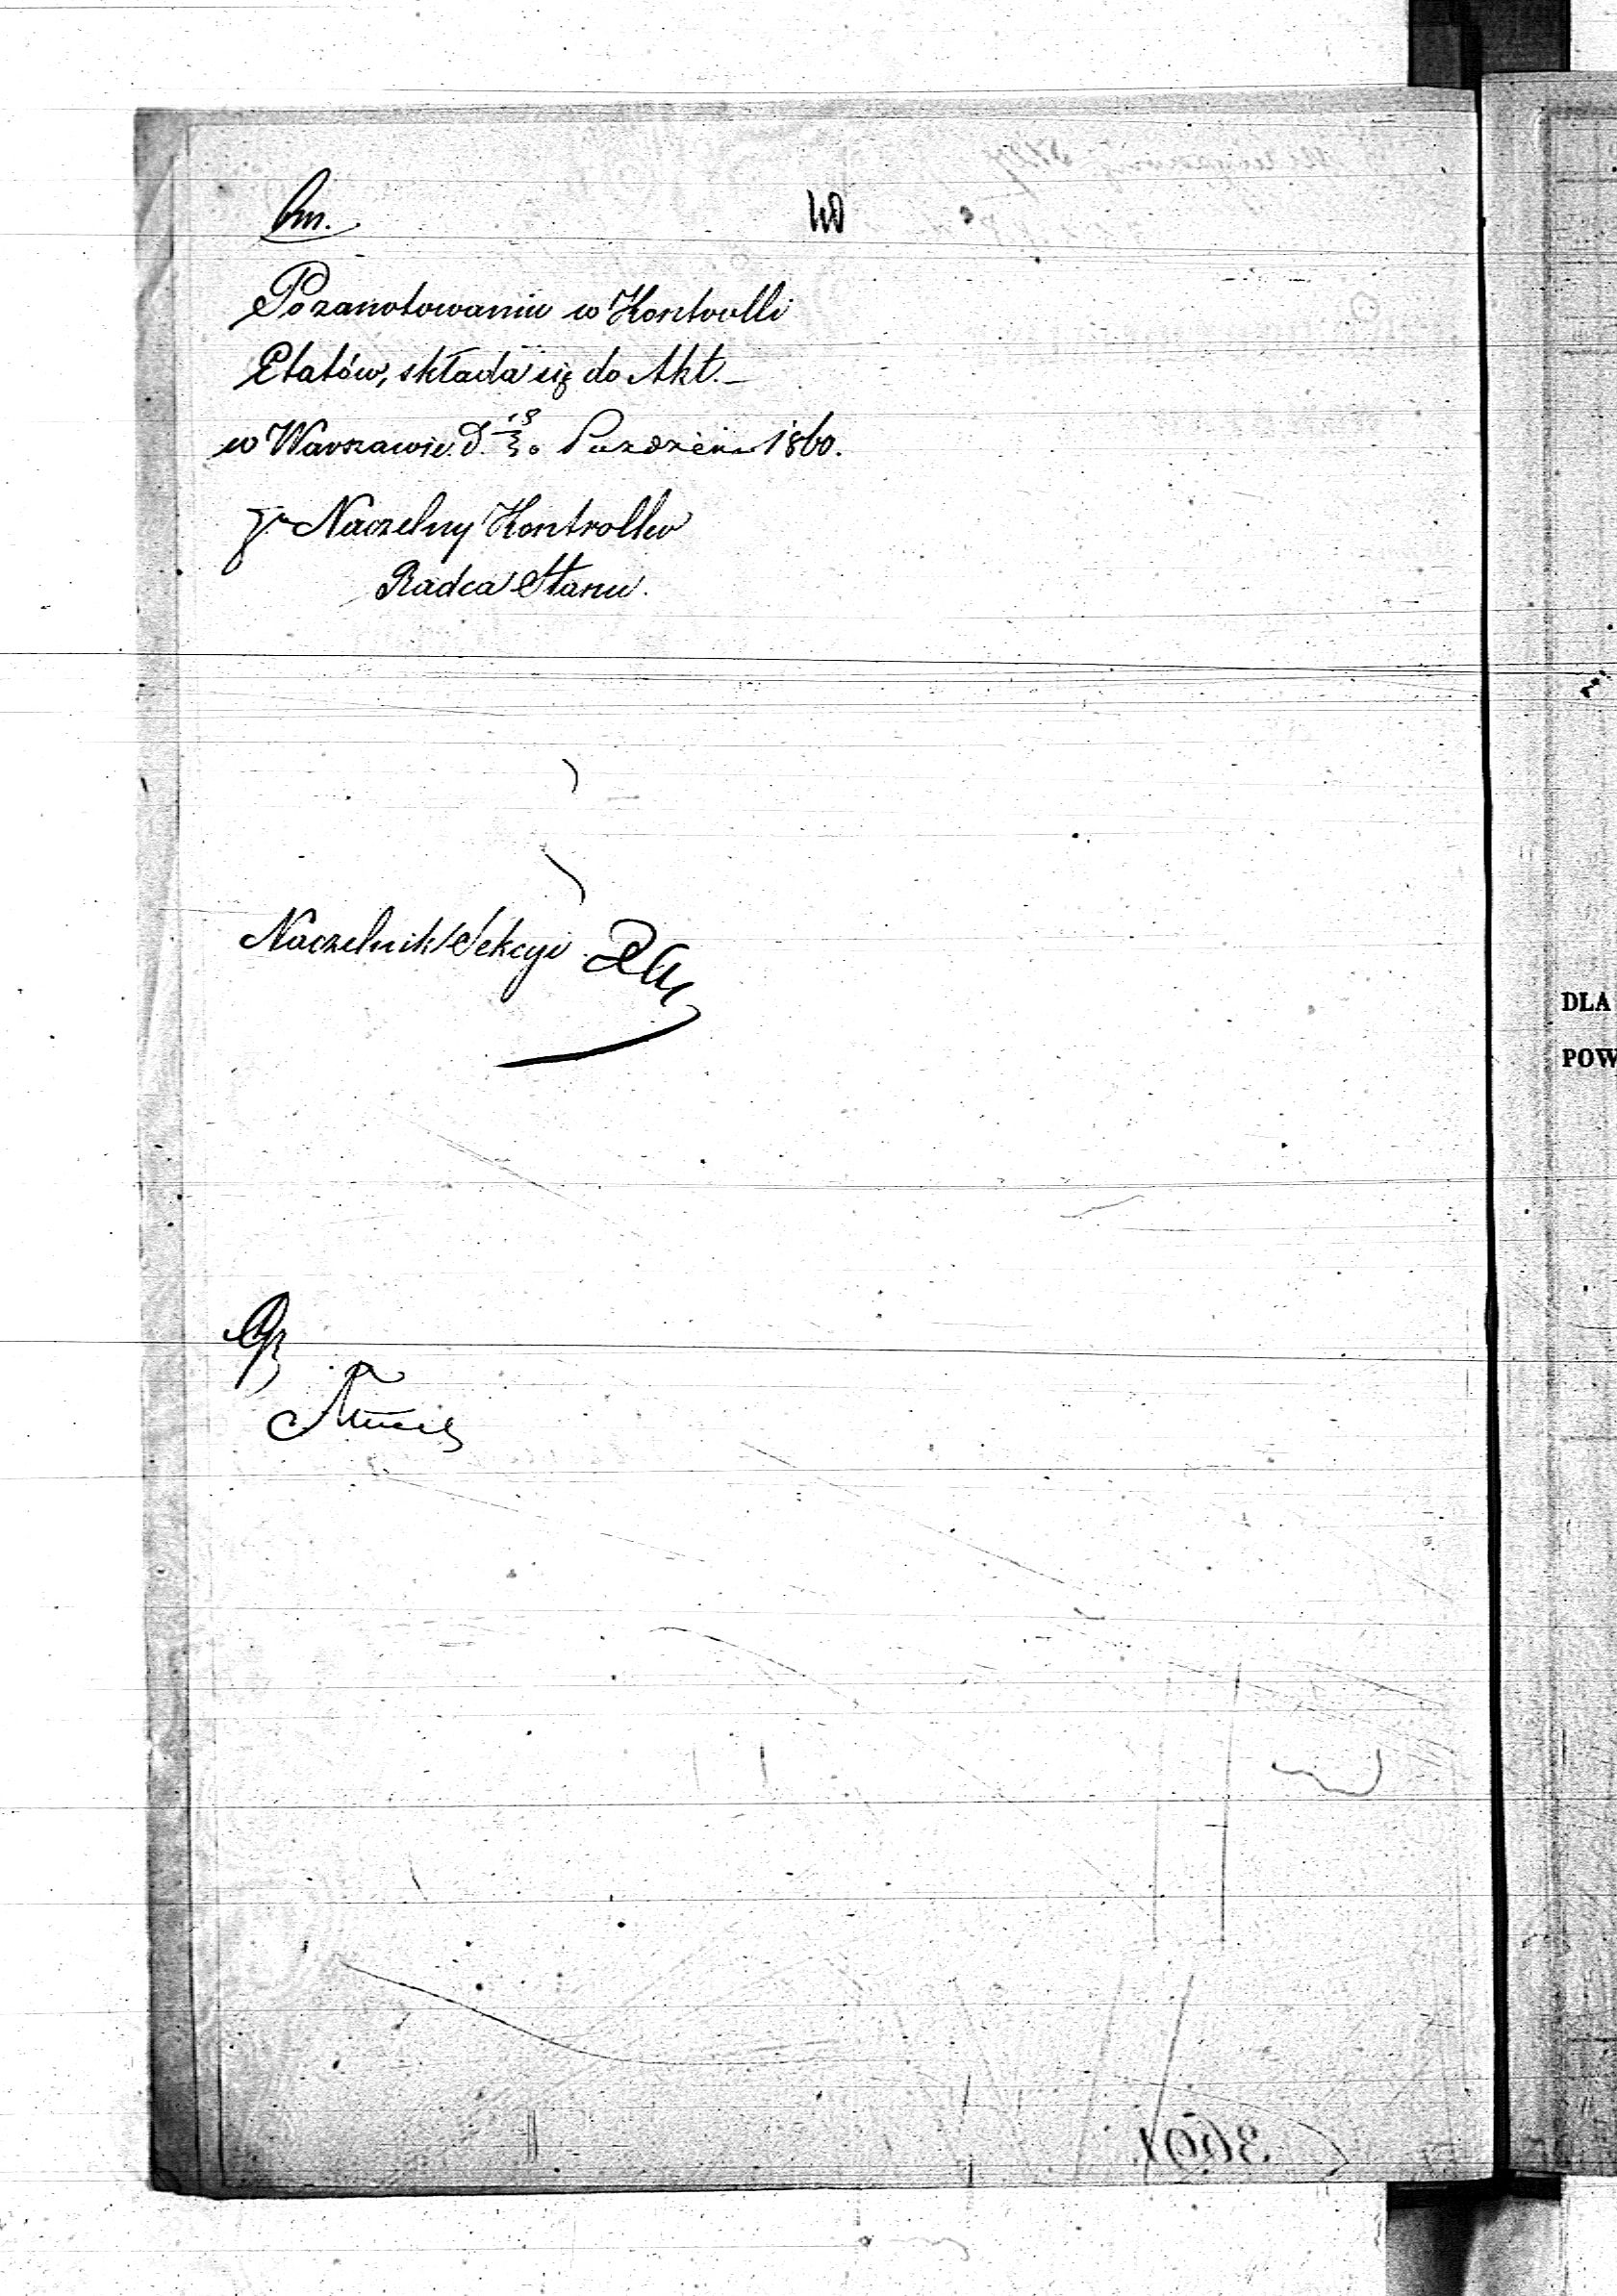 40
Po zanotowaniu w Kontrolli
Etatów, składa się do Akt. –
w Warszawie D. 18/30 Paździer 1860.
Naczelny Kontroller
Radca Stanu.
Naczelnik Sekcyi
DLA
POW
3601